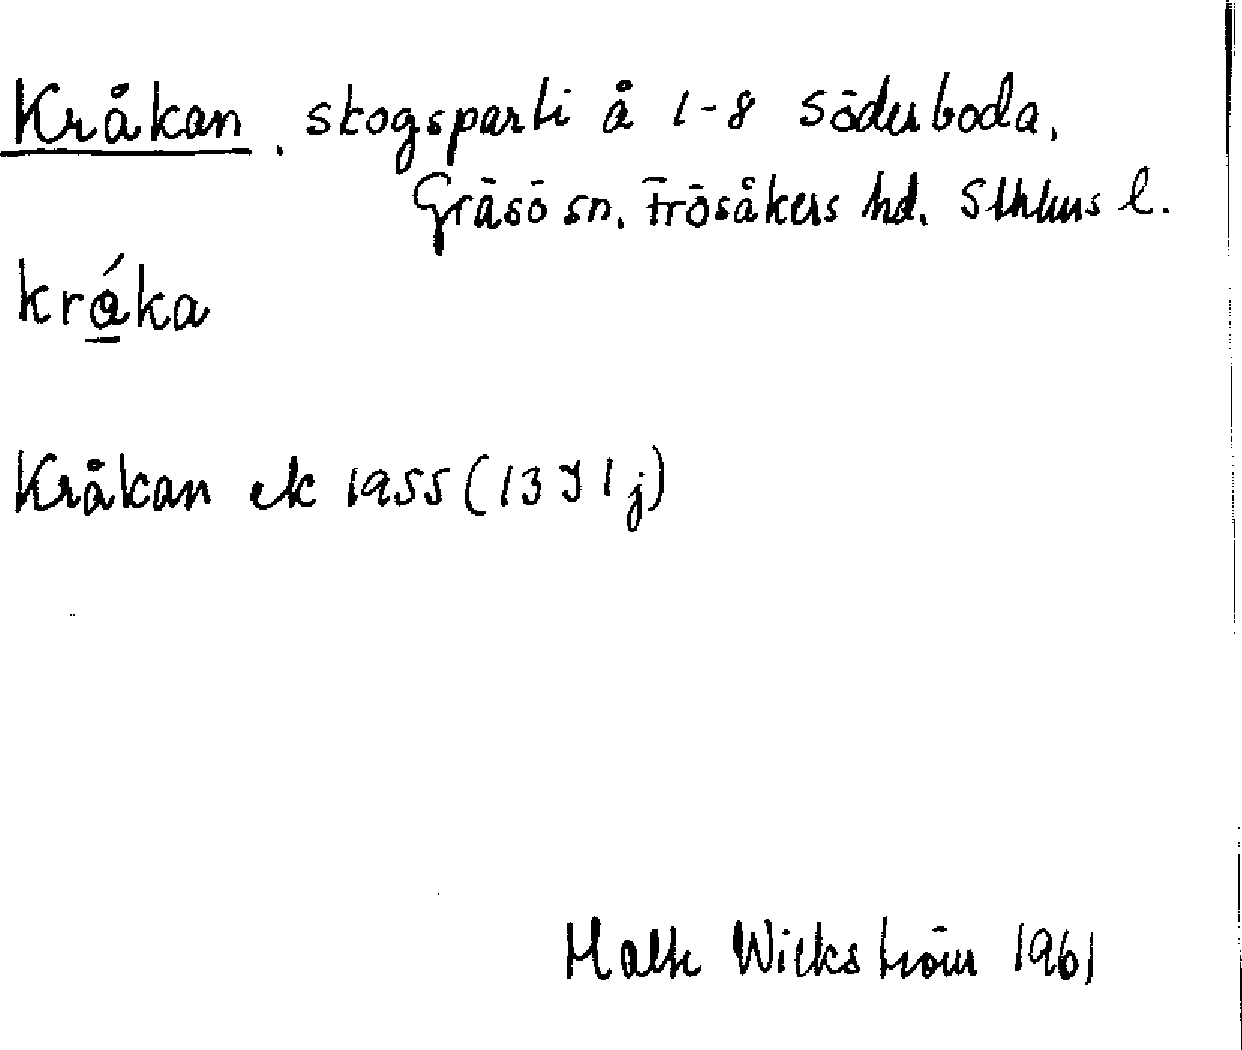 Kråkan, skogsparti å 1-8 Söderboda,
Gräsö sn. Frösåkers hd. Sthlms l.
kråka
Kråkan ek 1955 (13 I 1 j)
Wickström 1961